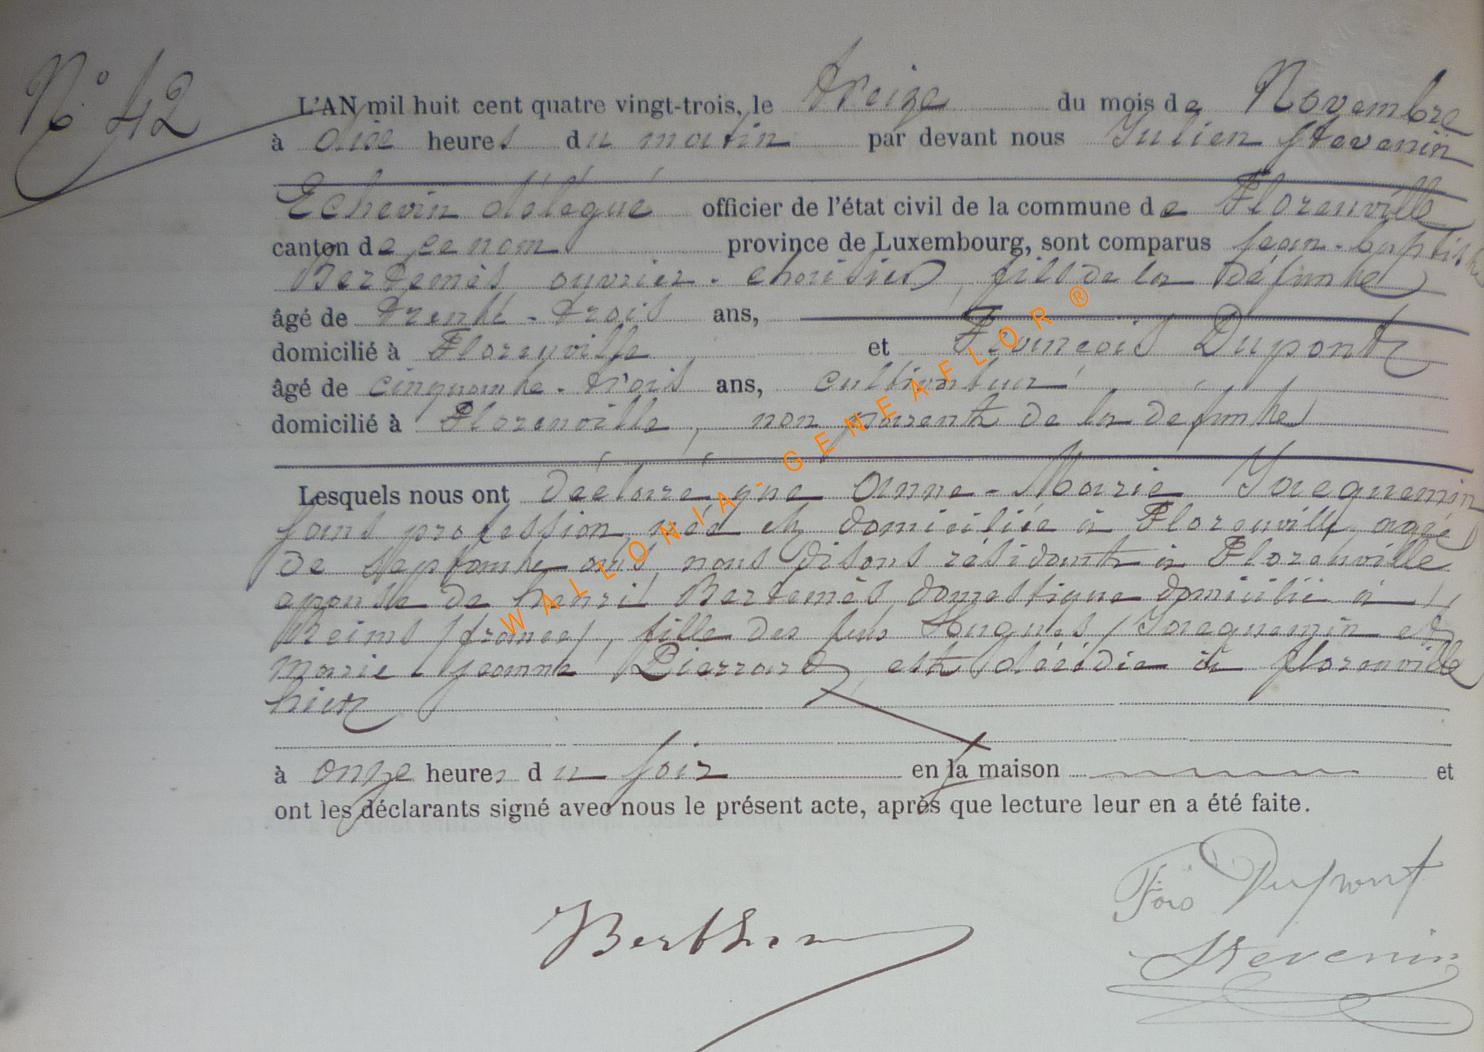 N° 42
L'AN mil huit cent quatre vingt-trois, le treize du mois de Novembre
à dix heures du matin par devant nous Julien Stevenin
Echevin délégué officier de l'état civil de la commune de Florenville
canton de ce nom province de Luxembourg, sont comparus Jean-baptiste
Bertemès ouvrier, fils de la défunte
âgé de trente-trois ans,
domicilié à Florenville, et François Dupont
âgé de cinquante-trois ans, cultivateur,
domicilié à Florenville, non parent de la défunte
Lesquels nous ont déclaré que Anne-Marie Jacquemin
sans profession, née et domiciliée à Florenville, agée
de septante ans, nous disons résidante à Florenville
épouse de henri Bertemès domestique domicilié à
Reims (france), fille des feus Hugues Jacquemin et
Marie Jeanne Pierrard, est décédée à florenville
hier
à onze heures du soir en la maison et
ont les déclarants signé avec nous le présent acte, après que lecture leur en a été faite.
Fois Dupont
Stevenin
WALLONIA-GENEAFLOR®